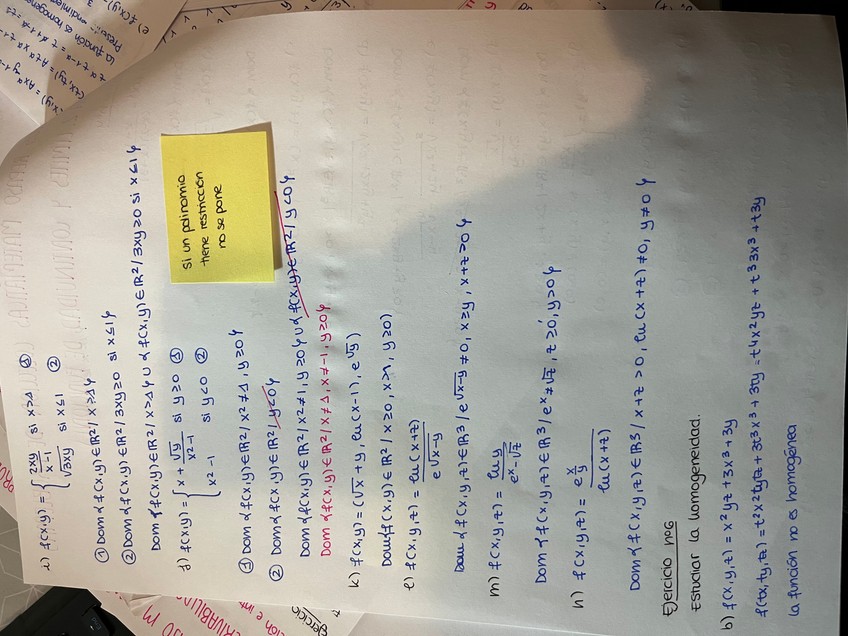 i) f(x,y) = { 2xy / x-1 si x>1 ①
√3xy si x≤1 ②
① Dom {(x,y)∈ℝ²/ x>1}
② Dom {(x,y)∈ℝ²/ 3xy≥0 si x≤1}
Dom {(x,y)∈ℝ²/ x>1} ∪ {(x,y)∈ℝ²/ 3xy≥0 si x≤1}
j) f(x,y) = { x + √y / x²-1 si y≥0 ①
x²-1 si y<0 ②
si un polinomio
tiene restricción
no se pone
① Dom {(x,y)∈ℝ²/ x²≠1, y≥0}
② Dom {(x,y)∈ℝ²/ y<0}
Dom {(x,y)∈ℝ²/ x²≠1, y≥0} ∪ {(x,y)∈ℝ²/ y<0}
Dom {(x,y)∈ℝ²/ x≠1, x≠-1, y≥0}
k) f(x,y) = (√x + y, ln(x-1), e√y)
Dom {(x,y)∈ℝ²/ x≥0, x>1, y≥0)
l) f(x,y,z) = ln(x+z) / e√x-y
Dom {(x,y,z)∈ℝ³/ e√x-y ≠0, x≥y, x+z>0}
m) f(x,y,z) = ln y / eˣ-√z
Dom {(x,y,z)∈ℝ³/ eˣ≠√z, z≥0, y>0}
n) f(x,y,z) = e^(x/y) / ln(x+z)
Dom {(x,y,z)∈ℝ³/ x+z>0, ln(x+z)≠0, y≠0}
Ejercicio nº6
Estudiar la homogeneidad.
b) f(x,y,z) = x²yz + 3x³ + 3y
f(tx,ty,tz) = t²x²tytz + 3t³x³ + 3ty = t⁴x²yz + t³3x³ + t3y
la función no es homogénea